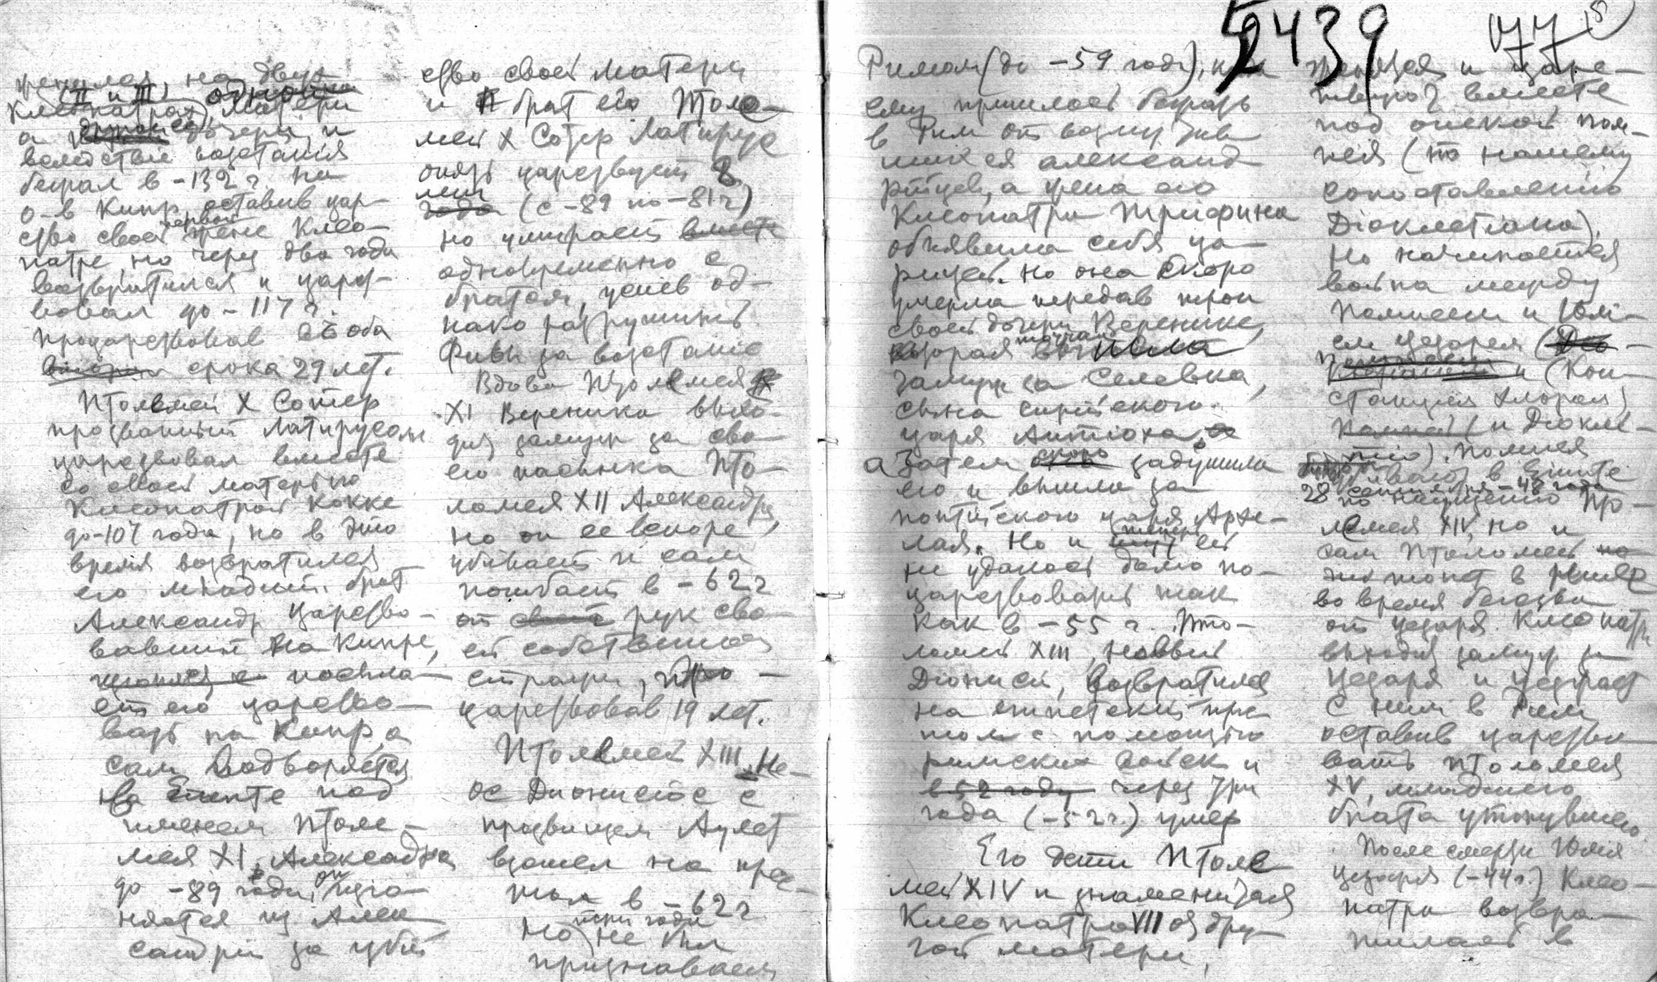 женился на двух
Клеопатрах (II и III), матери
а потом её дочери, и
вследствие восстания
бежал в -132 г на
о-в Кипр, оставив цар-
ство своей первой жене Клео-
патре, но через два года
возвратился и царст-
вовал до -117 г.
процарствовав оба
срока 29 лет.
Птолемей X Сотер
прозванный Латирусом
царствовал вместе
со своей матерью
Клеопатрой Кокке
до -107 года, но в это
время возвратился
его младший брат
Александр царство-
вавший на Кипре,
посыла-
ет его царство-
вать на Кипр, а
сам водворяется
на Египте под
именем Птоле-
мея XI, Александра
до -89 года, он изго-
няется из Алек
сандрии за убий
ство своей матери
и брат его Птоле-
мей X Сотер Латирус
опять царствует 8
лет (с -89 по -81 г)
но умирает
одновременно с
братом, успев од-
нако разрушить
Фивы за восстание
Вдова Птолемея
XI Вереника выхо-
дит замуж за сво-
его пасынка Пто-
ломея XII Александра,
но он ее вскоре
убивает и сам
погибает в -62 г
от рук сво-
ей собственной
стражи, про-
царствовав 19 лет.
Птолемей XIII, Не-
ос Дионисос с
прозвищем Аулет
взошел на прес-
тол в -62 г
но не был
признаваем
5 2439
77
18
Римом (до -59 года), и
ему пришлось бежать
в Рим от возмутив
шихся александ
рийцев, а жена его
Клеопатра Трифина
объявила себя ца-
рицей. Но она скоро
умерла передав трон
своей дочери Веренике,
которая вышла
замуж за Селевка,
сына сирийского
царя Антиоха,
а затем задушила
его и вышла за
понтийского царя Архе-
лая. Но и ей
не удалось долго по-
царствовать так
как в -55 г. Пто-
ломей XIII, Новый
Дионисий, возвратился
на египетский прес
тол с помощью
римских войск и
в 52 году через три
года (-52 г.) умер
Его дети Птоле
мей XIV и знаменитая
Клеопатра VII от дру
гой матери,
женятся и царс-
твуют вместе
под опекой Пом-
пея (по нашему
сопоставлению
Диоклетиана).
Но начинается
война между
Помпеем и Юли-
ем Цезарем
(Кон-
станцием Хлором)
и Диокле-
Помпея
убивают в Египте
28 сентября -48 года
по наущению Пто-
лемея XIV, но и
сам Птоломей
тонет в Ниле
во время бегства
от Цезаря. Клеопатра
выходит замуж за
Цезаря и уезжает
с ним в Рим
оставив царство-
вать Птоломея
XV, младшего
брата утонувшего.
После смерти Юлия
Цезаря (-44 г.) Клео-
патра возвра-
тилась в